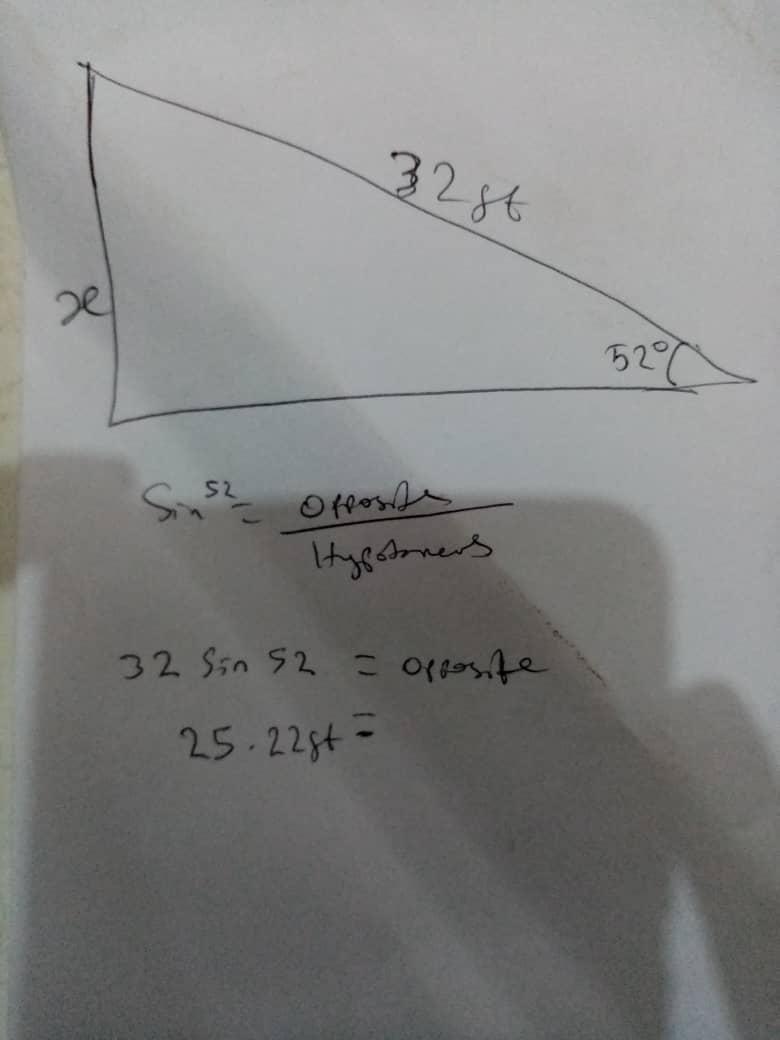 32ft
x
52°
Sin 52 = Opposite
Hypoteneus
32 Sin 52 = opposite
25.22ft =